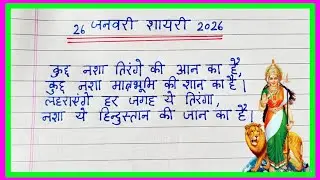 26 जनवरी शायरी 2026
कुछ नशा तिरंगे की आन का है,
कुछ नशा मातृभूमि की शान का है।
लहराएंगे हर जगह ये तिरंगा,
नशा ये हिन्दुस्तान की जान का है।